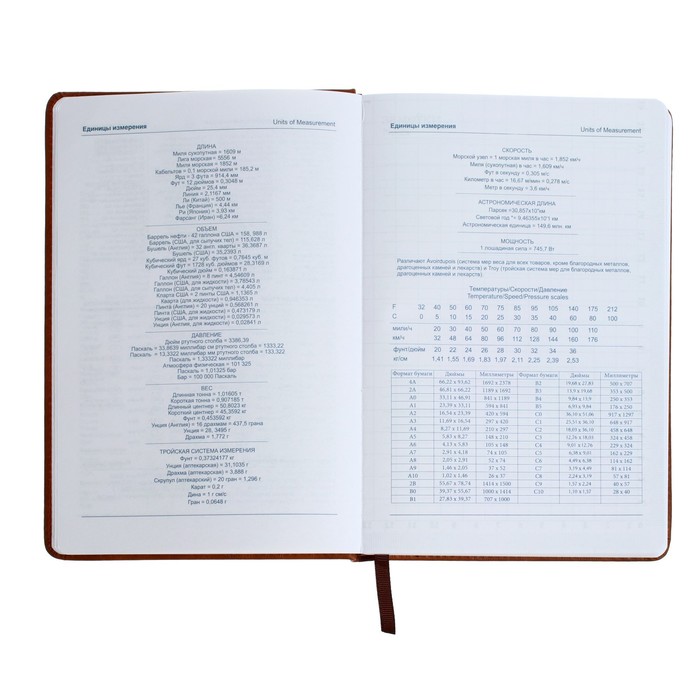 Единицы измерения Units of Measurement
ДЛИНА
Миля сухопутная = 1609 м
Лига морская = 5556 м
Миля морская = 1852 м
Кабельтов = 0,1 морской мили = 185,2 м
Ярд = 3 фута = 914,4 мм
Фут = 12 дюймов = 0,3048 м
Дюйм = 25,4 мм
Линия = 2,1167 мм
Ли (Китай) = 500 м
Лье (Франция) = 4,44 км
Ри (Япония) = 3,93 км
Фарсанг (Иран) =6,24 км
ОБЪЕМ
Баррель нефти - 42 галлона США = 158, 988 л
Баррель (США, для сыпучих тел) = 115,628 л
Бушель (Англия) = 32 англ. кварты = 36,3687 л
Бушель (США) = 35,2393 л
Кубический ярд = 27 куб. футов = 0,7645 куб. м
Кубический фут = 1728 куб. дюймов = 28,3169 л
Кубический дюйм = 0,163871 л
Галлон (Англия) = 8 пинт = 4,54609 л
Галлон (США, для жидкости) = 3,78543 л
Галлон (США, для сыпучих тел) = 4,405 л
Кварта США = 2 пинты США = 1,1365 л
Кварта (для жидкости) = 0,946353 л
Пинта (Англия) = 20 унций = 0,568261 л
Пинта (США, для жидкости) = 0,473179 л
Унция (США, для жидкости) = 0,029573 л
Унция (Англия, для жидкости) = 0,02841 л
ДАВЛЕНИЕ
Дюйм ртутного столба = 3386,39
Паскаль = 33,8639 миллибар см ртутного столба = 1333.22
Паскаль = 13,3322 миллибар мм ртутного столба = 133,322
Паскаль = 1,33322 миллибар
Атмосфера физическая = 101 325
Паскаль = 1,01325 бар
Бар = 100 000 Паскаль
ВЕС
Длинная тонна = 1,01605 т
Короткая тонна = 0,907185 т
Длинный центнер = 50,8023 кг
Короткий центнер = 45,3592 кг
Фунт = 0,453592 кг
Унция (Англия) = 16 драхмам = 437,5 грана
Унция = 28, 3495 г
Драхма = 1,772 г
ТРОЙСКАЯ СИСТЕМА ИЗМЕРЕНИЯ
Фунт = 0,37324177 кг
Унция (аптекарская) = 31,1035 г
Драхма (аптекарская) = 3,888 г
Скрупул (аптекарский) = 20 гран = 1,296 г
Карат = 0,2 г
Дина = 1 г см/с
Гран = 0,0648 г
Единицы измерения Units of Measurement
СКОРОСТЬ
Морской узел = 1 морская миля в час = 1,852 км/ч
Миля (сухопутная) в час = 1,609 км/ч
Фут в секунду = 0,305 м/с
Километр в час = 16.67 м/мин = 0,278 м/с
Метр в секунду = 3,6 км/ч
АСТРОНОМИЧЕСКАЯ ДЛИНА
Парсек =30,857х10¹²км
Световой год *= 9.46355х10¹1 км
Астрономическая единица = 149,6 млн. км
МОЩНОСТЬ
1 лошадиная сила = 745,7 Вт
Различают Avoirdupois (система мер веса для всех товаров, кроме благородных металлов,
драгоценных камней и лекарств) и Troy (тройская система мер для благородных металлов,
драгоценных камней и лекарств).
Температуры/Скорости/Давление
Temperature/Speed/Pressure scales
F 32 40 50 60 70 75 85 95 105 140 175 212
C 0 5 10 15 20 25 30 35 40 60 80 100
мили/ч 20 30 40 50 60 70 80 90 100 110
км/ч 32 48 64 80 96 112 128 144 160 176
фунт/дюйм 20 22 24 26 28 30 32 34 36
кг/см 1,41 1,55 1.69 1,83 1,97 2.11 2.25 2,39 2,53
Формат бумаги Дюймы Миллиметры Формат бумаги Дюймы Миллиметры
4A 66,22 x 93,62 1682 x 2378 B2 19,68 x 27.83 500 x 707
2A 46,81 x 66,22 1189 x 1682 B3 13,9 x 19,68 353 x 500
A0 33,11 x 46,81 841 x 1189 B4 9,84 x 13,9 250 x 353
A1 23,39 x 33,11 594 x 841 B5 6,93 x 9,84 176 x 250
A2 16,54 x 23,39 420 x 594 C0 36,10 x 51,06 917 x 1297
A3 11,69 x 16,54 297 x 420 C1 25,51 x 36,10 648 x 917
A4 8,27 x 11,69 210 x 297 C2 18,03 x 25,51 458 x 648
A5 5,83 x 8,27 148 x 210 C3 12,76 x 18,03 324 x 458
A6 4,13 x 5,83 105 x 148 C4 9,02 x 12,76 229 x 324
A7 2,91 x 4,13 74 x 105 C5 6,38 x 9,02 162 x 229
A8 2,05 x 2,91 52 x 74 C6 4,49 x 6,38 114 x 162
A9 1,46 x 2,05 37 x 52 C7 3,19 x 4,49 81 x 114
A10 1,02 x 1,46 26 x 37 C8 2,24 x 3,19 57 x 81
2B 55,67 x 78,74 1414 x 2000 C9 1,57 x 2,24 40 x 57
B0 39,37 x 55,67 1000 x 1414 C10 1,10 x 1,57 28 x 40
B1 27,83 x 39,37 707 x 1000